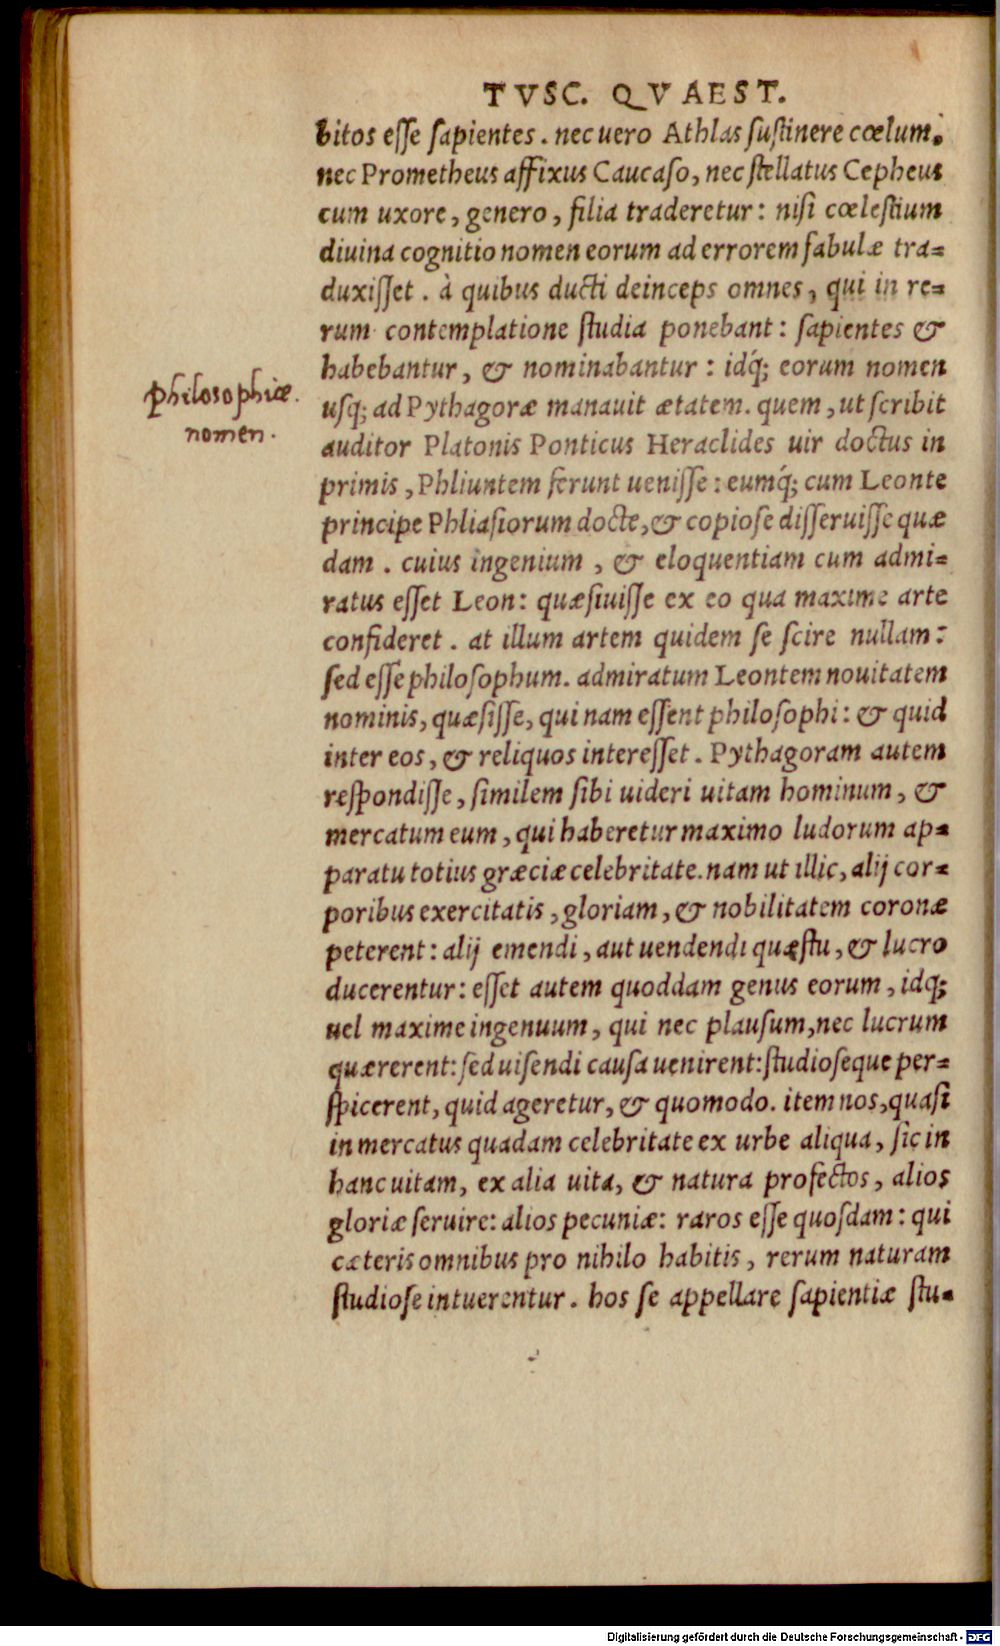 TVSC. QVAEST.
bitos esse sapientes. nec uero Athlas sustinere cœlum:
nec Prometheus affixus Caucaso, nec stellatus Cepheus
cum uxore, genero, filia traderetur: nisi cœlestium
diuina cognitio nomen eorum ad errorem fabulæ tra=
duxisset. à quibus ducti deinceps omnes, qui in re=
rum contemplatione studia ponebant: sapientes &
habebantur, & nominabantur: idq́; eorum nomen
usq; ad Pythagoræ manauit ætatem. quem, ut scribit
auditor Platonis Ponticus Heraclides uir doctus in
primis, Phliuntem ferunt uenisse: eumq́; cum Leonte
principe Phliasiorum docte, & copiose disseruisse quæ
dam. cuius ingenium, & eloquentiam cum admi=
ratus esset Leon: quæsiuisse ex eo qua maxime arte
confideret. at illum artem quidem se scire nullam:
sed esse philosophum. admiratum Leontem nouitatem
nominis, quæsisse, qui nam essent philosophi: & quid
inter eos, & reliquos interesset. Pythagoram autem
respondisse, similem sibi uideri uitam hominum, &
mercatum eum, qui haberetur maximo ludorum ap=
paratu totius græciæ celebritate. nam ut illic, alij cor=
poribus exercitatis, gloriam, & nobilitatem coronæ
peterent: alij emendi, aut uendendi quæstu, & lucro
ducerentur: esset autem quoddam genus eorum, idq;
uel maxime ingenuum, qui nec plausum, nec lucrum
quærerent: sed uisendi causa uenirent: studioseque per=
spicerent, quid ageretur, & quomodo. item nos, quasi
in mercatus quadam celebritate ex urbe aliqua, sic in
hanc uitam, ex alia uita, & natura profectos, alios
gloriæ seruire: alios pecuniæ: raros esse quosdam: qui
cæteris omnibus pro nihilo habitis, rerum naturam
studiose intuerentur. hos se appellare sapientiæ stu=
philosophiæ.
nomen.
Digitalisierung gefördert durch die Deutsche Forschungsgemeinschaft - DFG